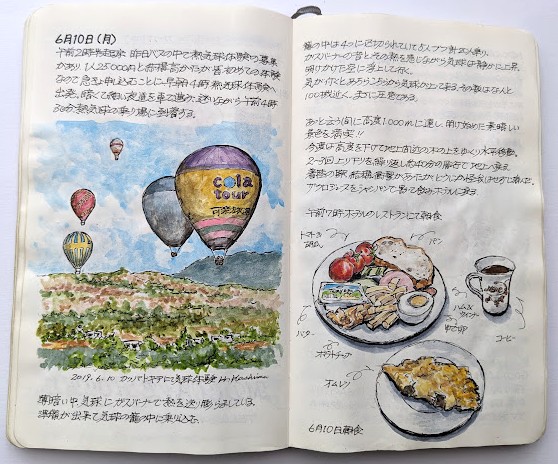 6月10日(月)
午前2時半起床 昨日バスの中で熱気球体験の募集
があり 1人25000円とお値段高かったが 皆初めての体験
なので 急きょ申し込むことに 早朝4時 熱気球体験へ
出発、暗くて細い夜道を車で進み、迷いながら 午前4時
30分熱気球の乗り場に到着する。
cola
tour
2019.6.10 カッパドキアにて気球体験 H.Kashima
薄暗い中 気球にガスバーナーで熱を送り膨らましている
準備が出来て気球の籠の中に乗り込んだ。
籠の中は4つに区切られていて 5人づつ計20人乗り、
ガスバーナーの音とその熱を感じながら気球は静かに上昇
明けかけた空に浮上して行く。
気が付くとあちらこちらから気球が上って来る その数はなんと
100機近く。まさに圧巻である
あっと言う間に高度1,000mに達し、明け始めた素晴しい
景色を満喫!!
今度は高度を下げて地上付近の木の上をゆっくり水平移動、
2〜3回上り下りを繰り返し 約40分の飛行で地上へ戻る
着陸の際 結構衝撃があったがどうにか怪我はせずに済んだ。
ザクロジュースをシャンパンで割って飲み ホテルに戻る
午前7時 ホテルのレストランにて朝食
トマト
パン
バター
ポテトチップ
オムレツ
ハム
ウィンナー
ゆで卵
コーヒー
6月10日朝食